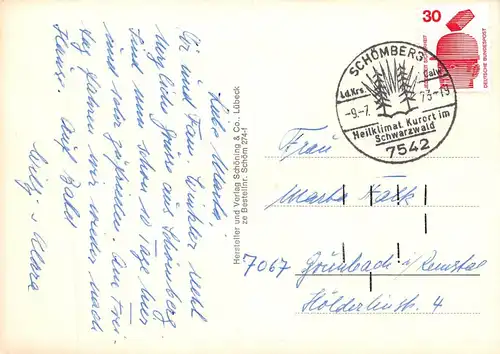 Liebe Marta,
Wir und Fam. Winkler
Grüße aus Schömberg.
Sind nun schon 10 Tage hier
und sehr zufrieden. Am Frei-
tag fahren wir wieder nach
Hause. Auf bald
Willy u. Klara
Hersteller und Verlag Schöning & Co., Lübeck
Bestellnr. Schöm 2741
30
JEDERZEIT SICHERHEIT
DEUTSCHE BUNDESPOST
SCHÖMBERG
Ld.Krs. Calw
-9.-7. 73-13
Heilklimat. Kurort im
Schwarzwald
7542
Frau
Marta Falk
7067 Grünbach i/ Remstal
Hölderlinstr. 4